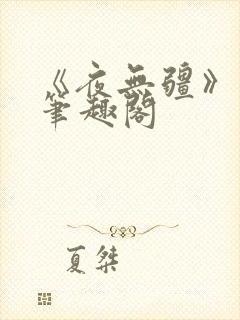 《夜無疆》
筆趣閣
夏桀